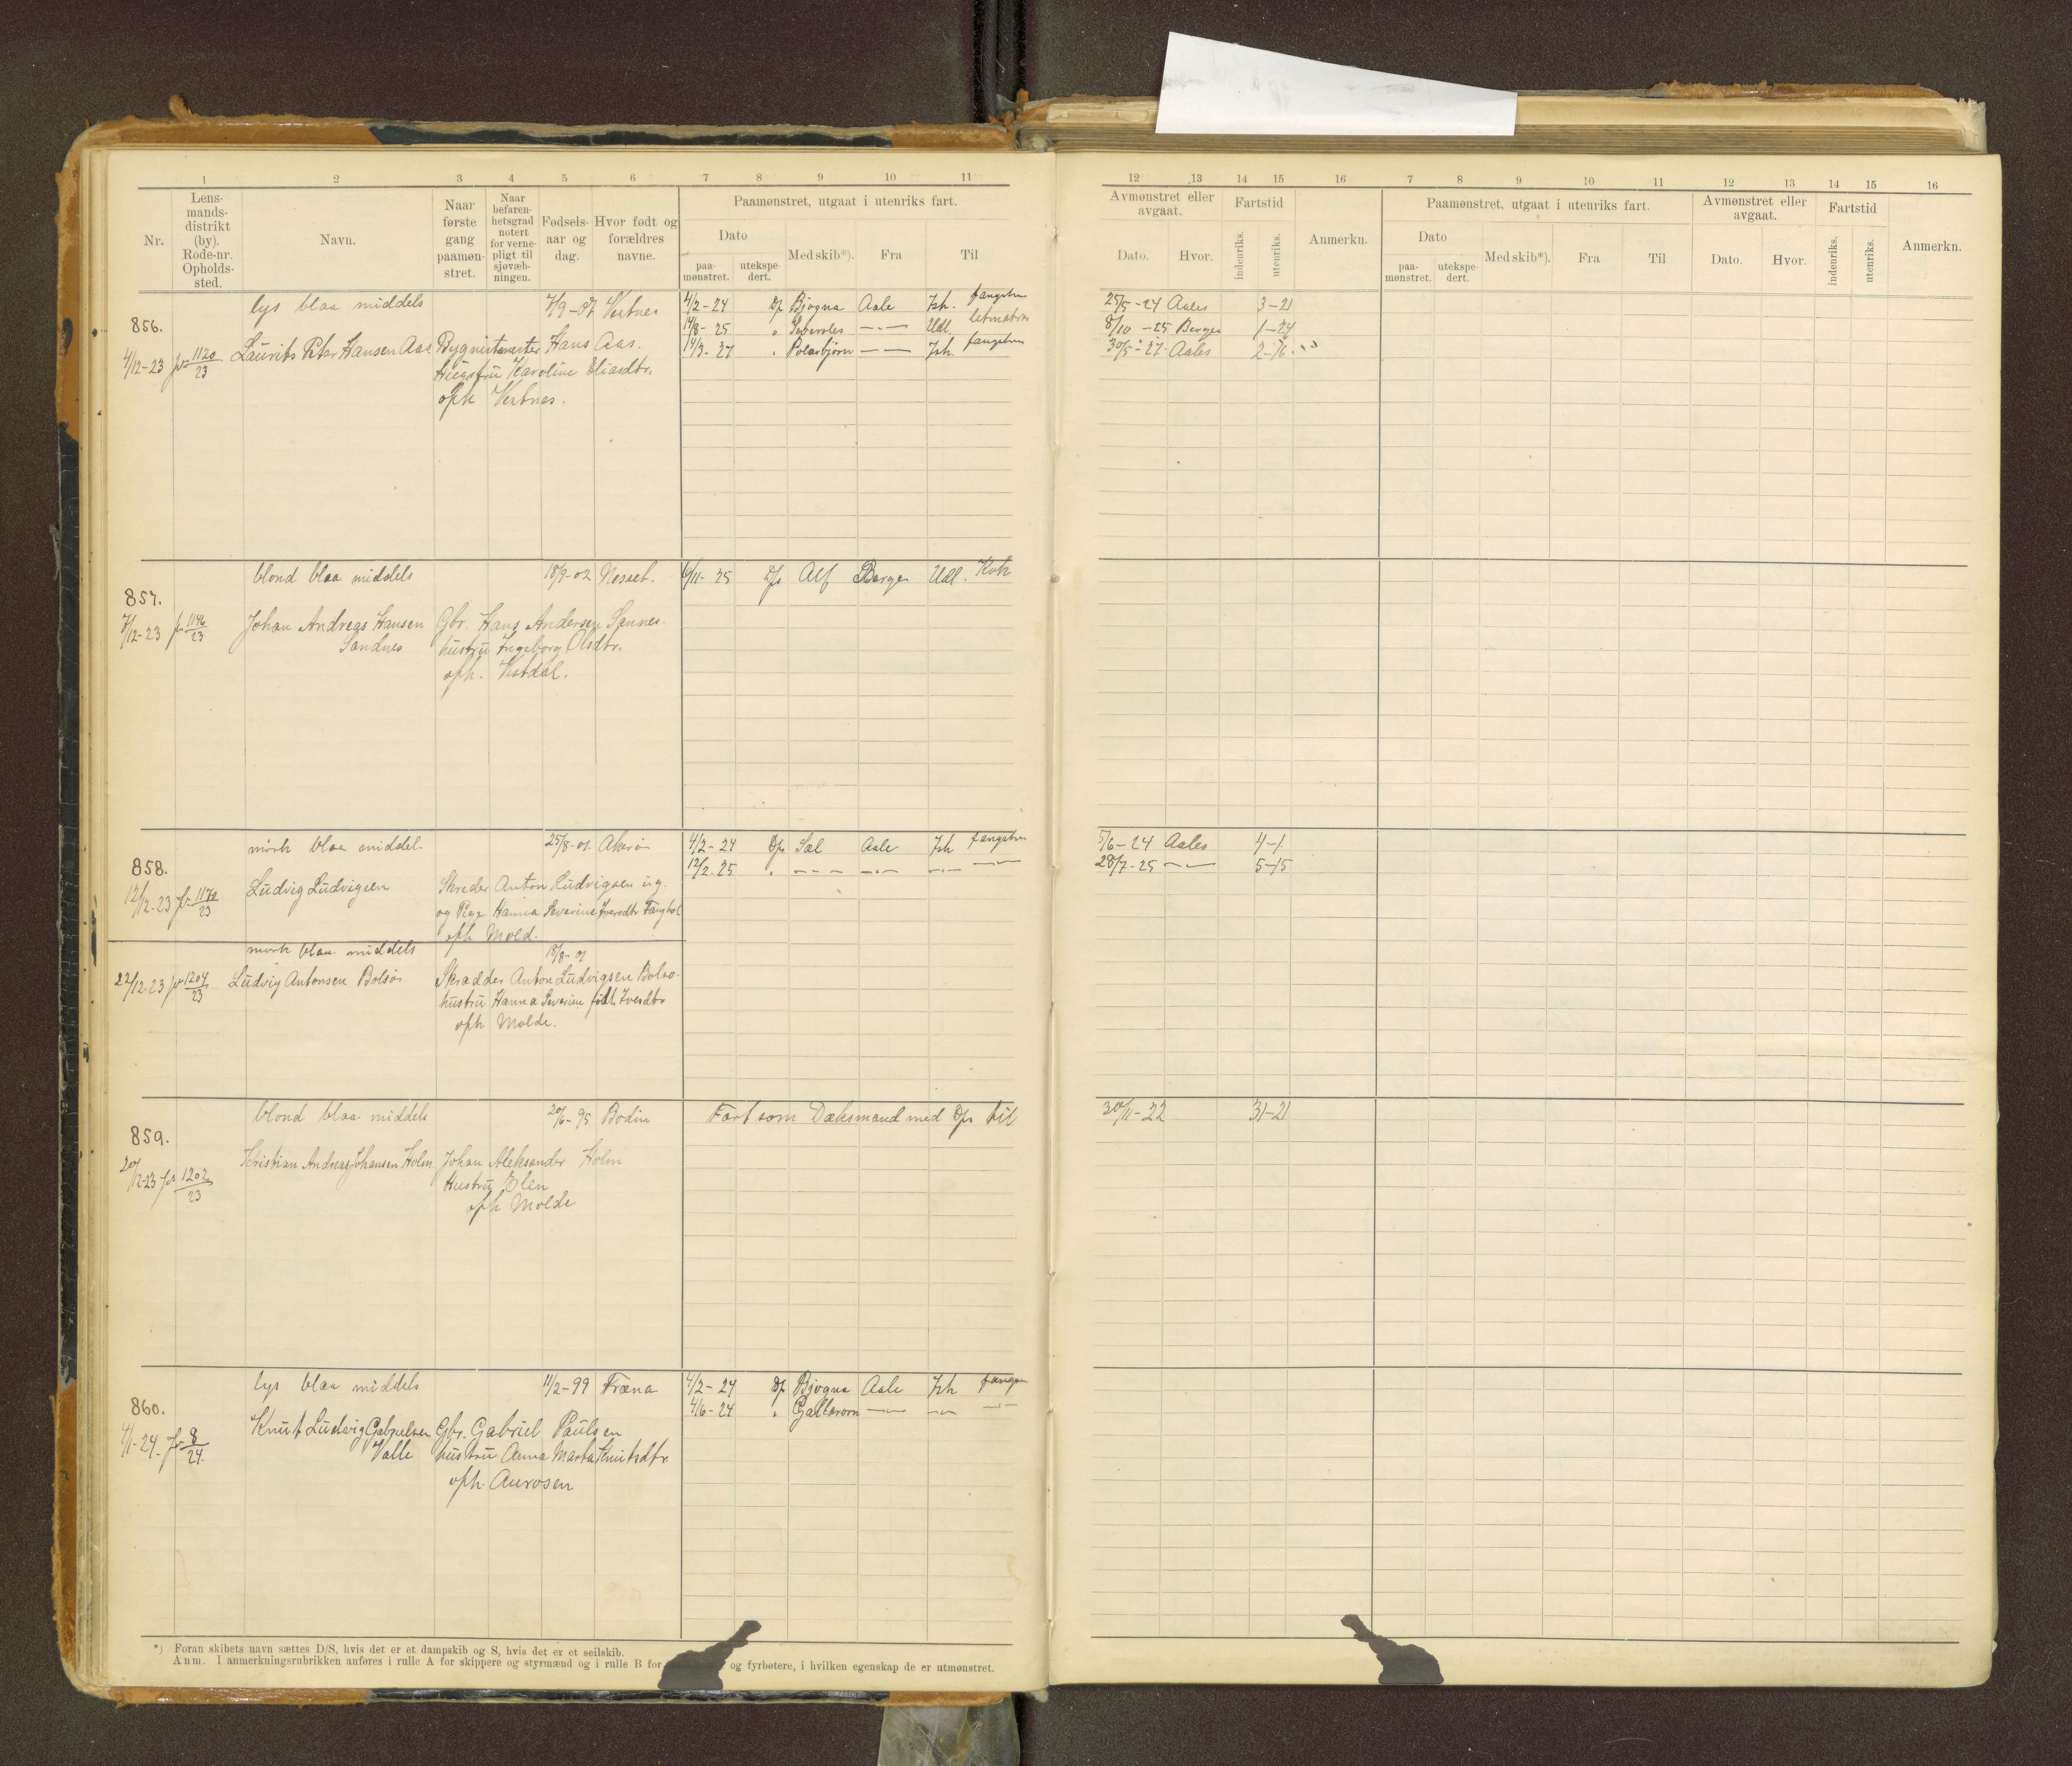 1 2 3 4 5 6 7 8 9 10 11
Nr.
Lens-
mands-
distrikt
(by).
Rode-nr.
Opholds-
sted.
Navn.
Naar
første
gang
paamøn-
stret.
Naar
befaren-
hetsgrad
notert
for verne-
pligt til
sjøvæb-
ningen.
Fødsels-
aar og
dag.
Hvor født og
forældres
navne.
Paamønstret, utgaat i utenriks fart.
Dato
paa-
mønstret.
utekspe-
dert.
Med skib*).
Fra
Til
856.
lys blaa middels Vestnes 4/2-24 D/s Bjogna Aale Ish. fangstm
14/8-25 " Udl. letmatros
14/3-27 " Polarbjørn — Ish. fangstm
4/12-23 fr 1120/23 Laurits Petar Hansen Aas. Hans Aas.
Karoline Eliasdtr.
oph Vestnes.
857.
blond blaa middels 18/9-02 Nesset. 6/11-25 D/s Alf Bergen Udl. Kok
7/12-23 fr 1146/23 Johan Andreas Hansen Gbr. Hans Andersen Sannes.
Sandnes hustru Ingeborg Olsdtr.
oph.
858.
mørk blaa middel. 25/8-01. Akerø 4/2-24 D/s Sæl Aale Ish fangstm
12/2-25 " — — — —
12/12-23 fr 1170/23 Ludvig Ludvigsen Skreder Anton Ludvigsen ug.
og Pige Hanna Severine Iversdtr
oph Mold.
mørk blaa middels 18/8-01
22/12-23 fr 1204/23 Ludvig Antonsen Bolsø Skradder Anton Ludvigsen Bolsø.
hustru Hanna Severine født Iversdtr
oph Molde.
859.
blond blaa middels 20/6-95 Bodin Fart som Dæksmand med D/s til
20/12-23 fr 1202/23 Kristian Andreas Johansen Holm. Johan Aleksander Holm
Hustru Elen
oph Molde
860.
lys blaa middels 11/2-99 Fræna 4/2-24 D/s Bjogna Aale Ish fangstm
4/6-24 " — — —
4/1-24. fr 8/24. Knut Ludvig Gabrielsen Gbr. Gabriel Paulsen
Valle hustru Anna Marta Knutsdtr.
oph. Aurosen
*) Foran skibets navn sættes D/S, hvis det er et dampskib og S, hvis det er et seilskib.
Anm. I anmerkningsrubrikken anføres i rulle A for skippere og styrmænd og i rulle B for og fyrbøtere, i hvilken egenskap de er utmønstret.
12 13 14 15 16 7 8 9 10 11 12 13 14 15 16
Avmønstret eller
avgaat.
Dato.
Hvor.
Fartstid
indenriks.
utenriks.
Anmerkn.
Paamønstret, utgaat i utenriks fart.
Dato
paa-
mønstret.
utekspe-
dert.
Med skib*).
Fra
Til
Avmønstret eller
avgaat.
Dato.
Hvor.
Fartstid
indenriks.
utenriks.
Anmerkn.
25/5-24 Aales 3-21
8/10-25 Bergen 1-24
30/5-27 Aales 2-16.
5/6-24 Aales 4-1
28/7-25 — 5-15
30/11-22 31-21